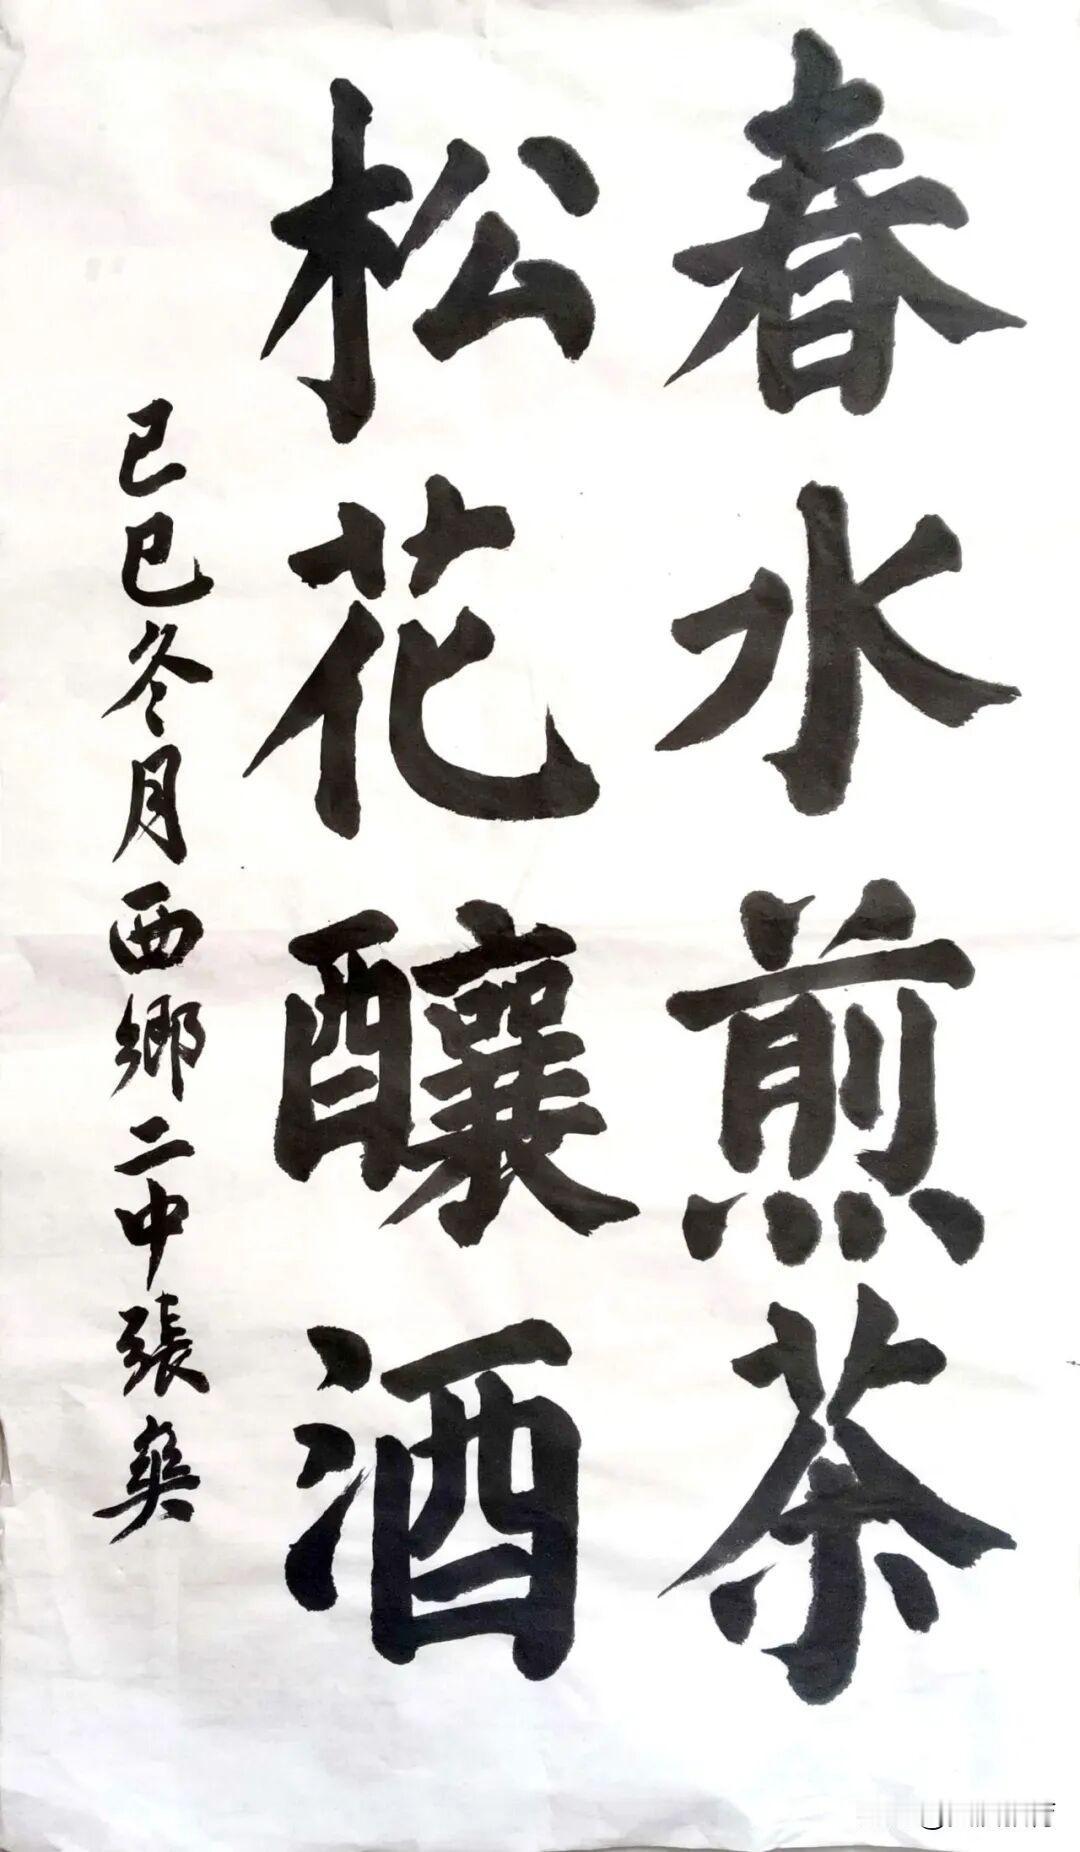 春水煎茶
松花釀酒
己巳冬月西鄉二中張爽